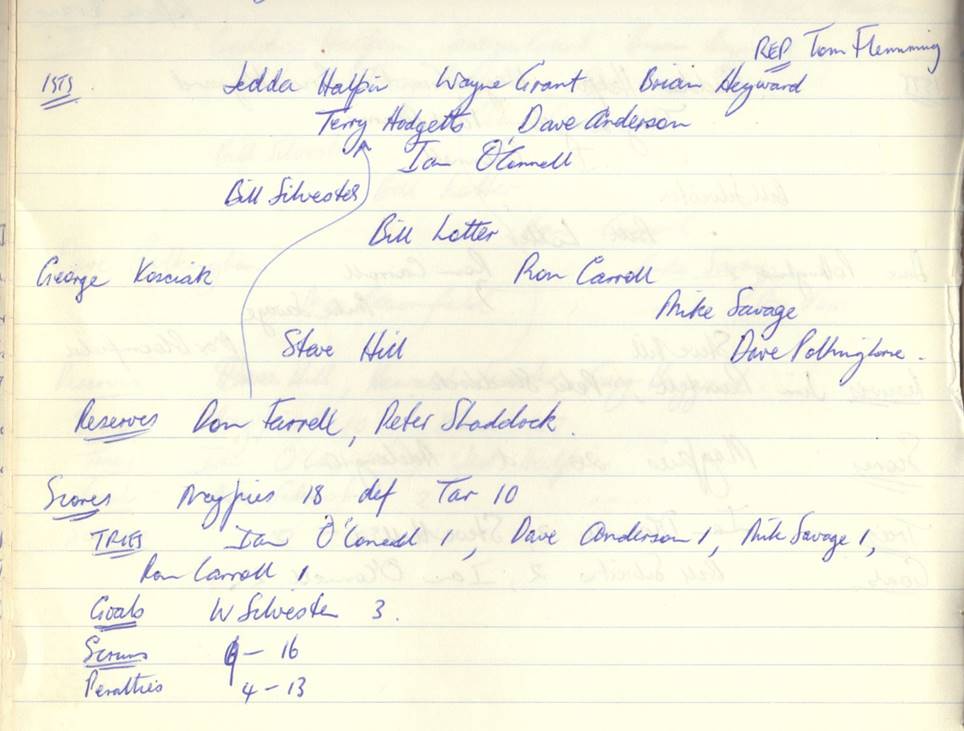 REP Tom Flemming
1STS Jedda Halpin Wayne Grant Brian Heyward
Terry Hodgetts Dave Anderson
Ian O'Connell
Bill Silvester
Bill Lotter
George Kosciak Ron Carroll
Mike Savage
Steve Hill Dave Pilkingtone.
Reserves Don Farrell, Peter Shaddock.
Scores Magpies 18 def Tar 10
TRIES Ian O'Connell 1, Dave Anderson 1, Mik Savage 1,
Ron Carroll 1
Goals W Silvester 3.
Scrums 9 - 16
Penalties 4 - 13